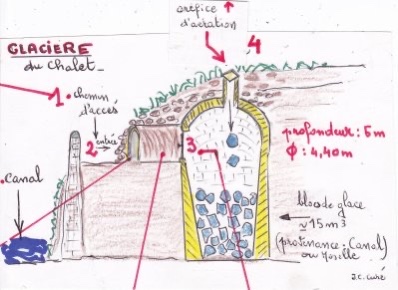 GLACIERE
du Chalet
orifice
d'aération
4
1. chemin
d'accés
2 entrée
3
profondeur: 5m
Φ: 4,40m
canal
bloc de glace
≈ 15 m3
(provenance: Canal)
ou Moselle
J.C. Curé